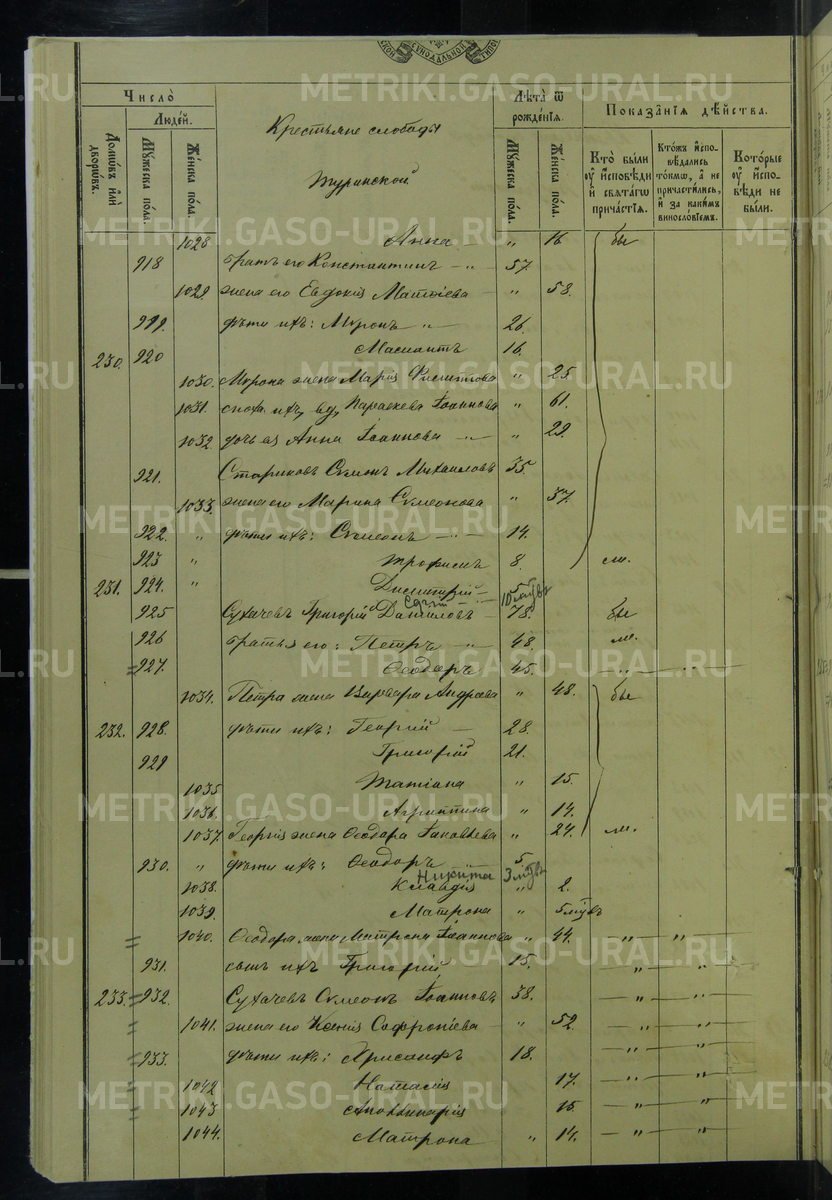 METRIKI.GASO-URAL.RU
Число
Людей.
Домовъ или дворовъ.
Мужеска пола.
Женска пола.
Крестьяне слободы
Туринской
Лѣта ѿ рожденїя.
Мужеска пола.
Женска пола.
Показанїя дѣйства.
Кто были у исповѣди и святагѡ причастїя.
Которые у исповѣди не были.
1028 Анна — „ 16 бы
918 братъ его Константинъ — „ — 57.
1029 жена его Евдокія Матѳіева — „ 58.
919. дѣти ихъ: Миронъ „ — 26.
230. 920 16.
1030. Мирона жена Марія „ 25
1031. Параскева Іоаннова „ 61.
1032. дочь ея Анна Іоаннова — „ — „ 29.
921. Стариковъ Симеонъ Михаиловъ 35.
1033. жена его Марина Симеонова „ 37.
922. „ дѣти ихъ: Симеонъ — „ — 14.
923 „ Трофимъ 8. мл.
231. 924. „ Димитрій —
925 Сухачевъ Григорій Даниловъ — 78. бы
926 братья его: Петръ — „ — 48. мл.
= 927. Ѳеодоръ 45. — „ — „ —
1034. Петра жена Варвара Андреева „ 48. бы
232. 928. дѣти ихъ: Георгій — 28.
929 Григорій 21.
1035 Татіана „ 15.
1036. Агриппина „ 14.
1037. Георгія жена Ѳеодора Іаковлева „ 24. мл.
930. „ дѣти ихъ: Ѳеодоръ „ 5
Никита 3 мѣс
1038. Клавдія „ 2.
1039. Матрона „ 5 мѣс
= 1040. Ѳеодора жена Матрона Іоаннова „ 44. — „ — „ —
931. сынъ ихъ Григорій 15. — „ — „
233. = 932. Сухачевъ Симеонъ Іоанновъ 38. — „ — „
= 1041. жена его Ксенія Софроніева — „ 52. — „ — „
= 933. дѣти ихъ: Хрисанфъ 18. — „ — „
= 1042 Наталія 17. — „ — „
= 1043 Аполлинарія 15. — „ — „
1044. Матрона „ 14. — „ — „